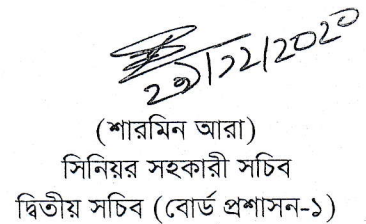 ২৯/১২/২০২০
(শারমিন আরা)
সিনিয়র সহকারী সচিব
দ্বিতীয় সচিব (বোর্ড প্রশাসন-১)